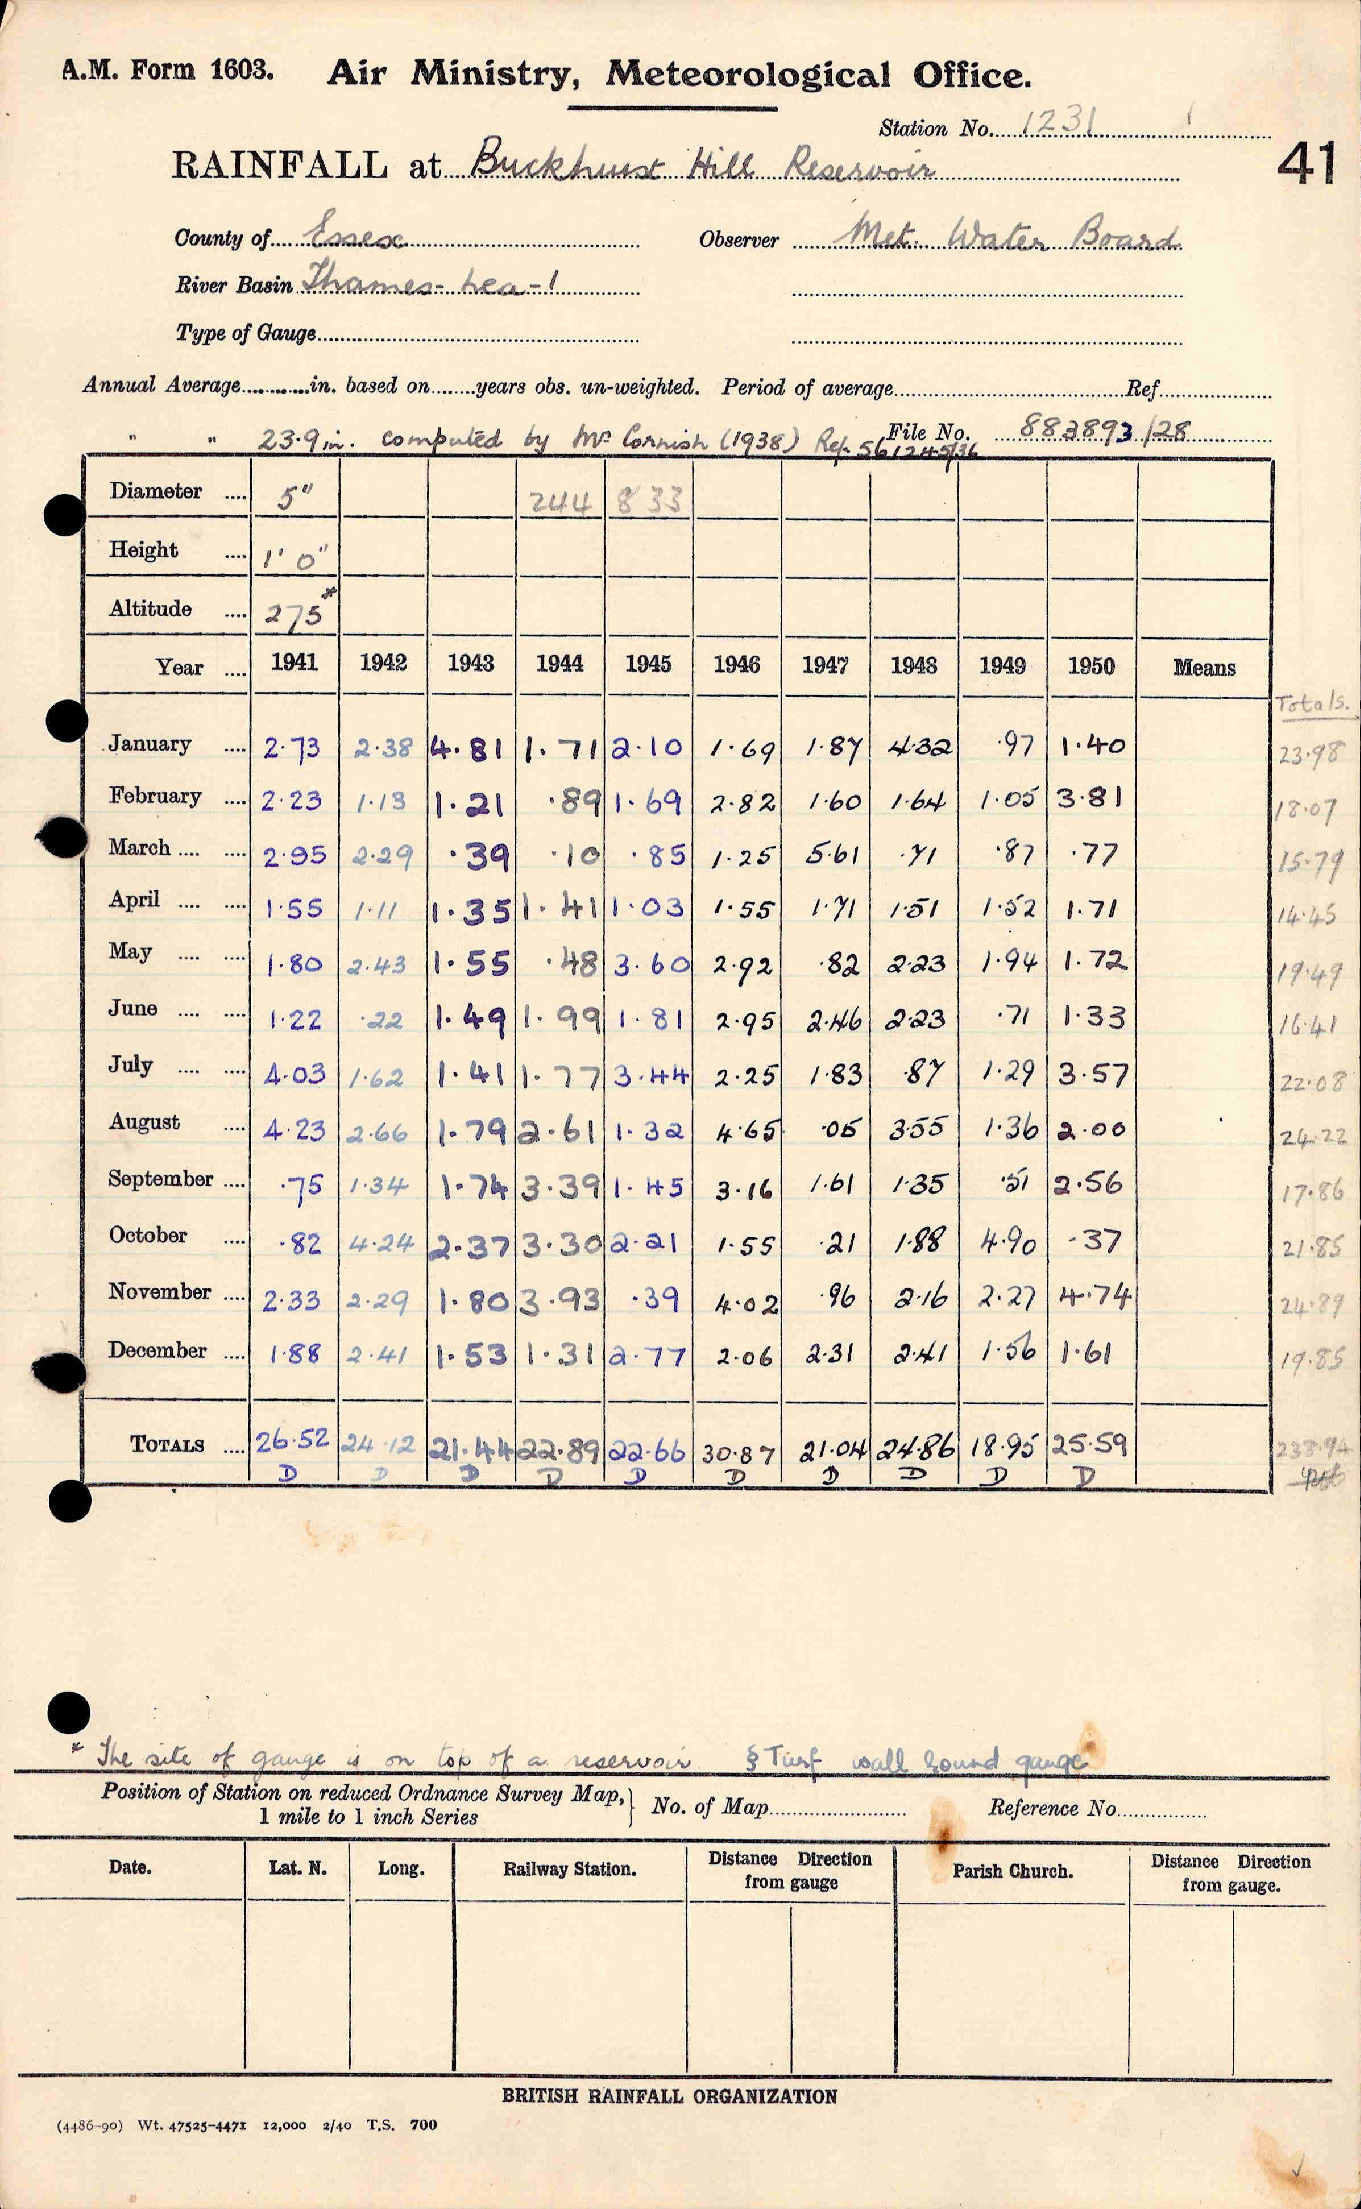 A.M. Form 1603. Air Ministry, Meteorological Office.
Station No. 1231
41
RAINFALL at Buckhurst Hill Reservoir
County of Essex Observer Met. Water Board
River Basin Thames - Lea - 1
Type of Gauge
Annual Average in. based on years obs. un-weighted. Period of average Ref.
" " 23.9 in. computed by Mr Cornish (1938) Ref. 561245/36 File No. 883893/28
Diameter .... 5" 244 833
Height .... 1' 0"
Altitude .... 275*
Year .... 1941 1942 1943 1944 1945 1946 1947 1948 1949 1950 Means
Totals.
January .... 2.73 2.38 4.81 1.71 2.10 1.69 1.87 4.32 .97 1.40 23.98
February .... 2.23 1.13 1.21 .89 1.69 2.82 1.60 1.64 1.05 3.81 18.07
March .... .... 2.95 2.29 .39 .10 .85 1.25 5.61 .71 .87 .77 15.79
April .... .... 1.55 1.11 1.35 1.41 1.03 1.55 1.71 1.51 1.52 1.71 14.45
May .... .... 1.80 2.43 1.55 .48 3.60 2.92 .82 2.23 1.94 1.72 19.49
June .... .... 1.22 .22 1.49 1.99 1.81 2.95 2.46 2.23 .71 1.33 16.41
July .... .... 4.03 1.62 1.41 1.77 3.44 2.25 1.83 .87 1.29 3.57 22.08
August .... 4.23 2.66 1.79 2.61 1.32 4.65 .05 3.55 1.36 2.00 24.22
September .... .75 1.34 1.74 3.39 1.45 3.16 1.61 1.35 .51 2.56 17.86
October .... .82 4.24 2.37 3.30 2.21 1.55 .21 1.88 4.90 .37 21.85
November .... 2.33 2.29 1.80 3.93 .39 4.02 .96 2.16 2.27 4.74 24.89
December .... 1.88 2.41 1.53 1.31 2.77 2.06 2.31 2.41 1.56 1.61 19.85
TOTALS .... 26.52 24.12 21.44 22.89 22.66 30.87 21.04 24.86 18.95 25.59 238.94
D D D D D D D D D D
* The site of gauge is on top of a reservoir § Turf wall round gauge
Position of Station on reduced Ordnance Survey Map, 1 mile to 1 inch Series } No. of Map Reference No.
Date. Lat. N. Long. Railway Station. Distance Direction from gauge Parish Church. Distance Direction from gauge.
BRITISH RAINFALL ORGANIZATION
(4486-90) Wt. 47525-4471 12,000 2/40 T.S. 700